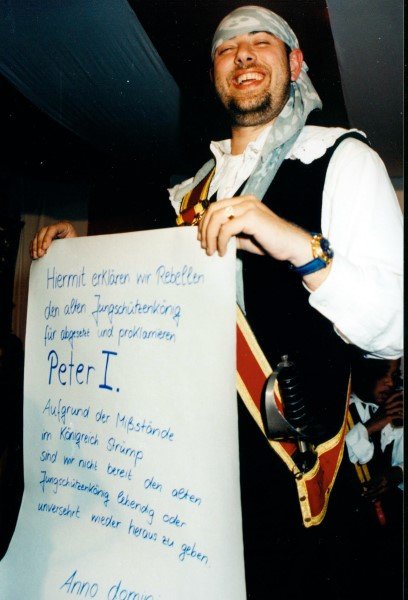 Hiermit erklären wir Rebellen
den alten Jungschützenkönig
für abgesetzt und proklamieren
Peter I.
Aufgrund der Mißstände
im Königreich Strump
sind wir nicht bereit den alten
Jungschützenkönig lebendig oder
unversehrt wieder heraus zu geben.
Anno domini